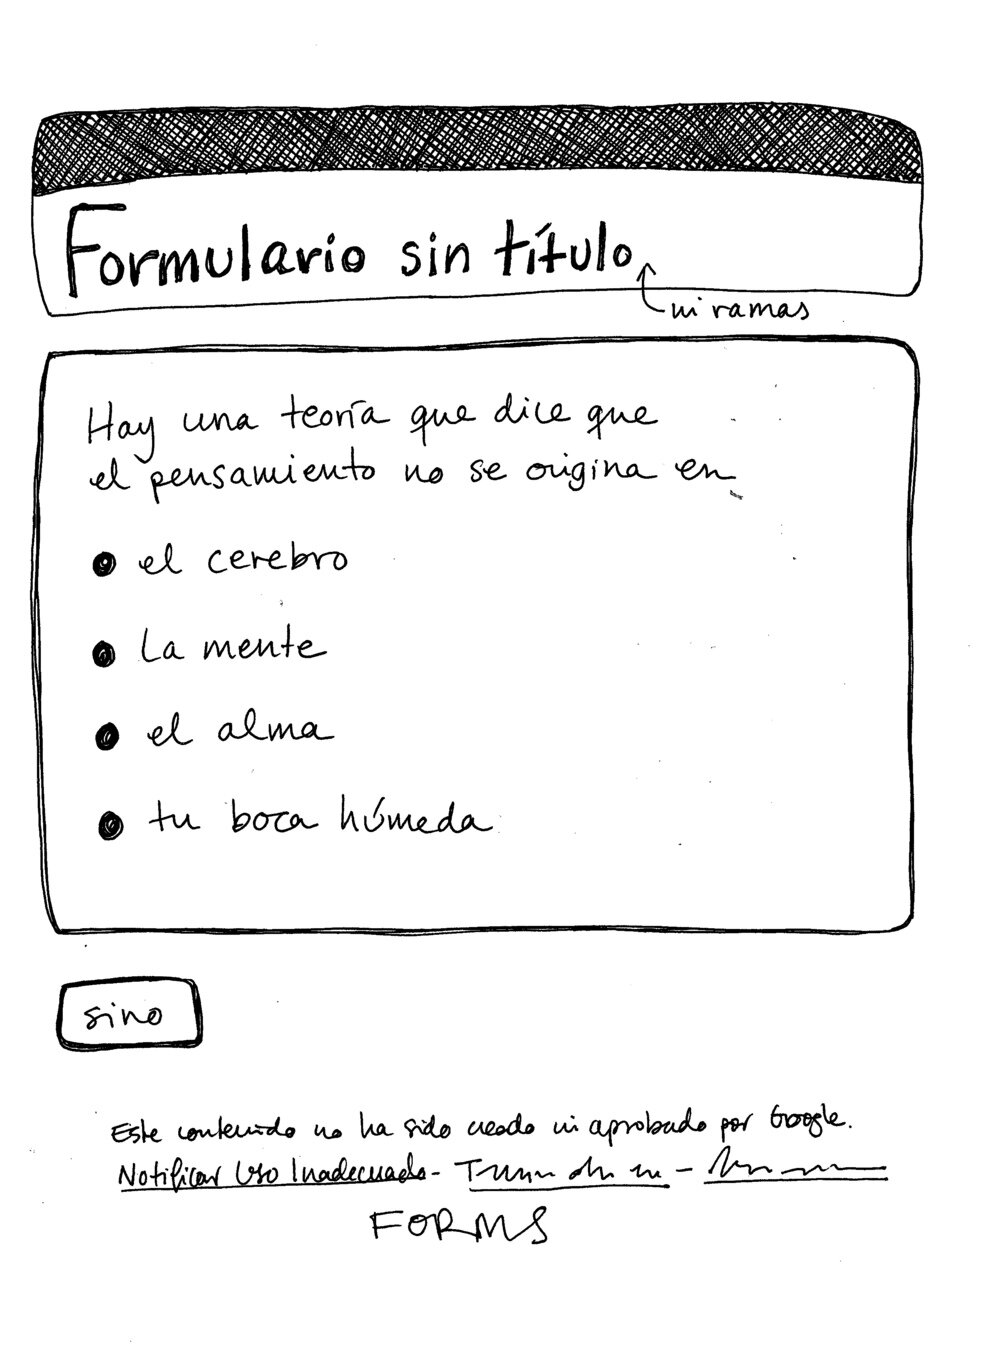 Formulario sin título
ni ramas
Hay una teoría que dice que
el pensamiento no se origina en
el cerebro
La mente
el alma
tu boca húmeda
sino
Este contenido no ha sido creado ni aprobado por Google.
Notificar Uso Inadecuado -
FORMS